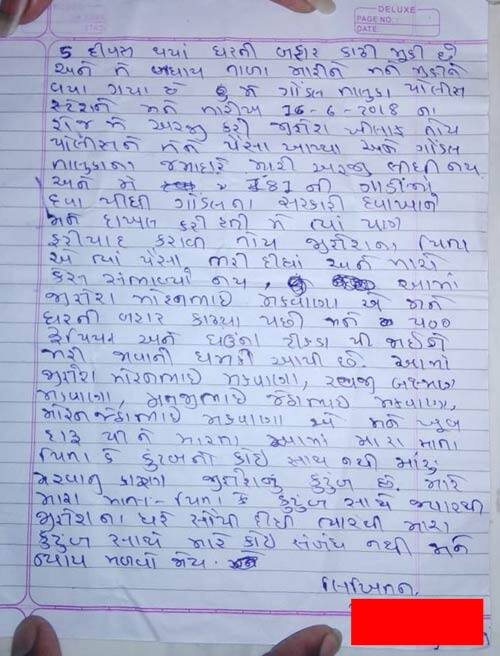 DELUXE
PAGE NO.:
DATE:
5 દીવસ થયાં ઘરની બહાર કાઢી મુકી છે
અને મે બધાય તાળા મારીને મને મુકીને
વયા ગયા છે મે ગોંડલ તાલુકા પોલીસ
સ્ટેશને મને તારીખ 16-6-2018 ના
રોજ મે અરજી કરી જીતેશ ખીલાફ તોય
પોલીસને મેને પૈસા આપ્યા અને ગોંડલ
તાલુકાના જમાદારે મારી અરજી લીધી નય.
અને મે 181 ની ગાડીમાં
દવા પીધી ગોંડલના સરકારી દવાખાને
મને દાખલ કરી હતી મે ત્યાં પણ
ફરીયાદ કરાવી તોય જીતેશના પિતા
એ ત્યાં પૈસા ભરી દીધાં અને મારો
કેસ સંભાળ્યો નય, આમાં
જીતેશ મોહનભાઇ મકવાણા એ મને
ઘરની બહાર કાઢ્યા પછી મને ૫૦૦
રૂપિયા અને ઘઉંના ટીકડા પી જઈને
મરી જવાની ધમકી આપી છે. આમાં
જીતેશ મોહનભાઇ મકવાણા,
મકવાણા, મનજીભાઇ જેઠાભાઇ મકવાણા,
મોહનજેઠાભાઇ મકવાણા એ મને ખુબ
દારૂ પીને મારતા આમાં મારા માતા
પિતા કે કુટુંબનો કોઇ સાથ નથી મારું
મરવાનું કારણ જીતેશનું કુટુંબ છે. મારે
મારા માતા-પિતા કે કુટુંબ સાથે જ્યારથી
જીતેશના ઘરે સોંપી દીધી ત્યારથી મારા
કુટુંબ સાથે મારે કોઇ સંબંધ નથી મને
ન્યાય મળવો જોય.
લિખિતન.